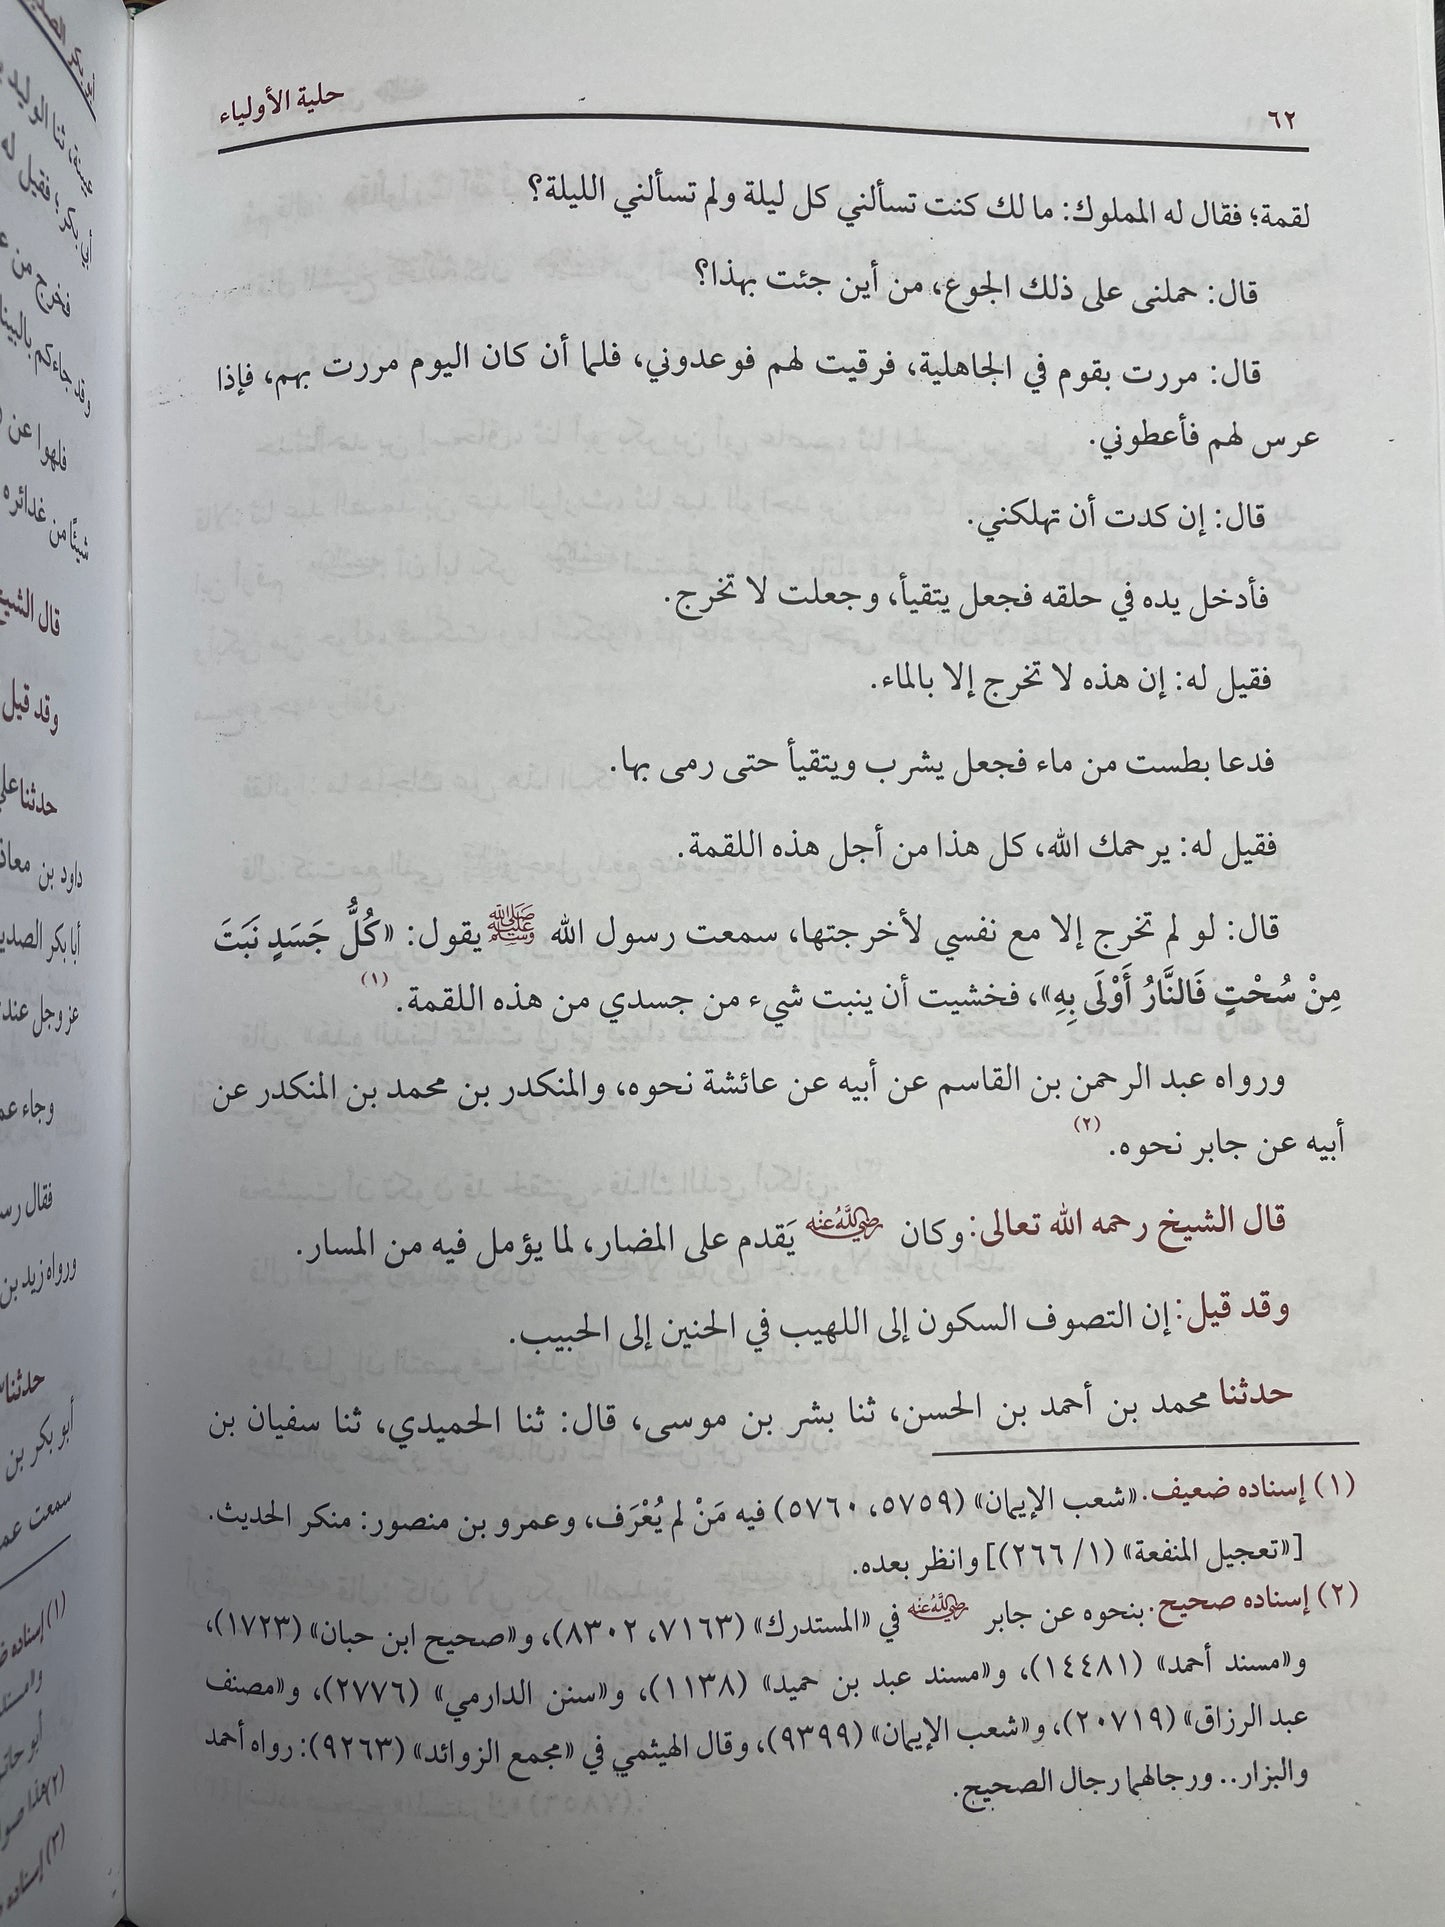 ٦٢
حلية الأولياء
لقمة؛ فقال له المملوك: ما لك كنت تسألني كل ليلة ولم تسألني الليلة؟
قال: حملنى على ذلك الجوع، من أين جئت بهذا؟
قال: مررت بقوم في الجاهلية، فرقيت لهم فوعدوني، فلما أن كان اليوم مررت بهم، فإذا
عرس لهم فأعطوني.
قال: إن كدت أن تهلكني.
فأدخل يده في حلقه فجعل يتقيأ، وجعلت لا تخرج.
فقيل له: إن هذه لا تخرج إلا بالماء.
فدعا بطست من ماء فجعل يشرب ويتقيأ حتى رمى بها.
فقيل له: يرحمك الله، كل هذا من أجل هذه اللقمة.
قال: لو لم تخرج إلا مع نفسي لأخرجتها، سمعت رسول الله ﷺ يقول: «كُلُّ جَسَدٍ نَبَتَ
مِنْ سُحْتٍ فَالنَّارُ أَوْلَى بِهِ»، فخشيت أن ينبت شيء من جسدي من هذه اللقمة.(١)
ورواه عبد الرحمن بن القاسم عن أبيه عن عائشة نحوه، والمنكدر بن محمد بن المنكدر عن
أبيه عن جابر نحوه.(٢)
قال الشيخ رحمه الله تعالى: وكان رضي الله عنه يَقدم على المضار، لما يؤمل فيه من المسار.
وقد قيل: إن التصوف السكون إلى اللهيب في الحنين إلى الحبيب.
حدثنا محمد بن أحمد بن الحسن، ثنا بشر بن موسى، قال: ثنا الحميدي، ثنا سفيان بن
(١) إسناده ضعيف. «شعب الإيمان» (٥٧٥٩، ٥٧٦٠) فيه مَنْ لم يُعْرَف، وعمرو بن منصور: منكر الحديث.
[«تعجيل المنفعة» (١/ ٢٦٦)] وانظر بعده.
(٢) إسناده صحيح. بنحوه عن جابر رضي الله عنه في «المستدرك» (٧١٦٣، ٨٣٠٢)، و«صحيح ابن حبان» (١٧٢٣)،
و«مسند أحمد» (١٤٤٨١)، و«مسند عبد بن حميد» (١١٣٨)، و«سنن الدارمي» (٢٧٧٦)، و«مصنف
عبد الرزاق» (٢٠٧١٩)، و«شعب الإيمان» (٩٣٩٩)، وقال الهيثمي في «مجمع الزوائد» (٩٢٦٣): رواه أحمد
والبزار.. ورجالهما رجال الصحيح.